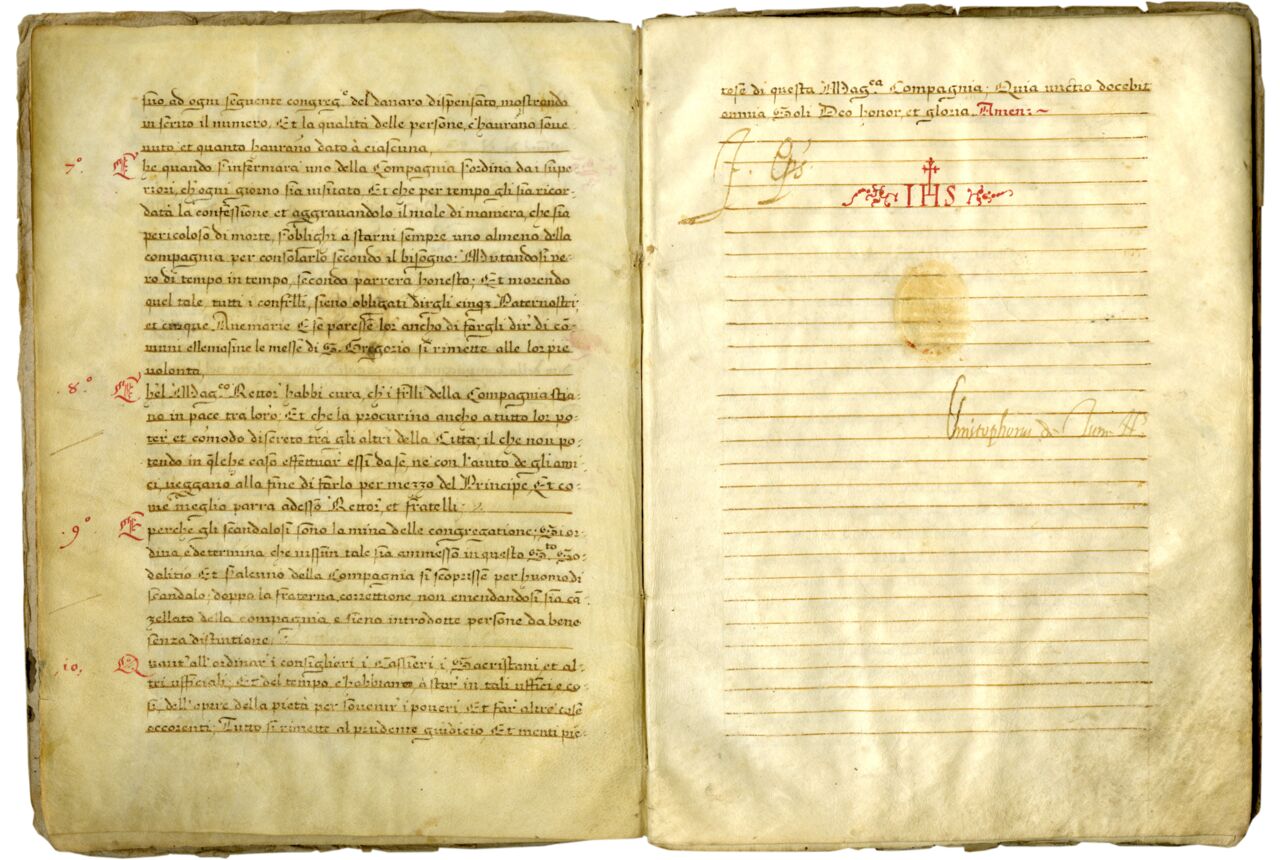 suo ad ogni seguente congreg.º del danaro dispensato, mostrando
in scritto il numero, Et la qualità delle persone, c'havrano sove-
nuto et quanto havrano dato à ciascuna,
7.º Che quando s'infermarà uno della Compagnia s'ordina da i supe-
riori, ch'ogni giorno sia visitato. Et che per tempo gli sia ricor-
data la confessione et aggravandolo il male di maniera, che sia
pericoloso di morte, s'oblighi a starvi sempre uno almeno della
compagnia per consolarlo secondo il bisogno: Mutandosi pe-
ro di tempo in tempo, secondo parrerà honesto; Et morendo
quel tale, tutti i confrlli, sieno obligati dirgli cinq; Paternostri,
et cinque Avemarie E se paresse lor' ancho di fargli dir' di cõ-
muni ellemosine le messe di S. Gregorio si rimette alle lor pie
volonta,
.8.º Chel Mag.co Rettor' habbi cura, ch'i frlli della Compagnia stia-
no in pace tra loro; Et che la procurino ancho a tutto lor po-
ter' et comodo discreto tra gli altri della Citta; il che non po-
tendo in qlche caso effettuar' essi da se, ne con l'aiuto de gli ami-
ci, veggano alla fine di farlo per mezzo del Principe, Et co-
me meglio parra ad esso Rettor', et fratelli:
.9.º E perche gli scandalosi sono la ruina delle congregatione; Si or-
dina, e determina che nissun tale sia ammesso in questo S.to So-
dalitio Et s'alcuno della Compagnia si scoprisse per huomo di
scandalo: doppo la fraterna, correttione non emendandosi sia cã-
zellato della compagnia e sieno introdotte persone da bene
senza distintione,
.10. Quant' all'ordinar' i consiglieri i Cassieri i Sacristani, et al-
tri ufficiali; Et del tempo c'habbiano, à star' in tali uffici e co-
si dell'opere della pietà per sovenir' i poveri Et far altre cose
occorenti; Tutto si rimette al prudente guidicio, Et menti pie-
tose di questa Mag.ca Compagnia; Quia unctio docebit
omnia Soli Deo honor, et gloria. Amen:~
F. Eps
IHS